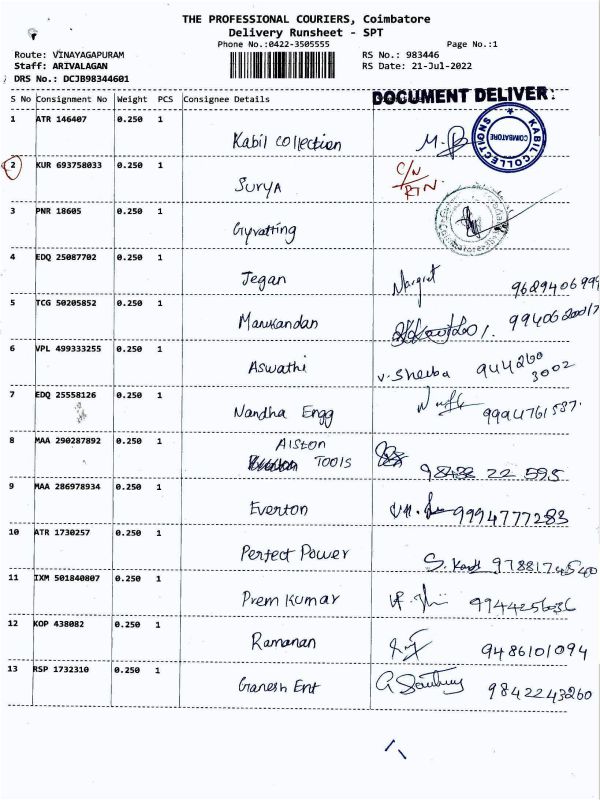 THE PROFESSIONAL COURIERS, Coimbatore
Delivery Runsheet - SPT
Phone No.:0422-3505555 Page No.:1
Route: VINAYAGAPURAM RS No.: 983446
Staff: ARIVALAGAN RS Date: 21-Jul-2022
DRS No.: DCJB98344601
S No Consignment No Weight PCS Consignee Details DOCUMENT DELIVER:
1 ATR 146407 0.250 1
Kabil Collection
KABIL COLLECTIONS COIMBATORE
2 KUR 693758033 0.250 1
Surya C/N RTN.
3 PNR 18605 0.250 1
Gyvatting
4 EDQ 25087702 0.250 1
Jegan Margret
5 TCG 50205852 0.250 1
Manikandan
6 VPL 499333255 0.250 1
Aswathi V. Sheeba 944260 3002
7 EDQ 25558126 0.250 1
Nandha Engg
8 MAA 290287892 0.250 1
Alston
TOOLS 98432 22 595
9 MAA 286978934 0.250 1
Everton 9994777283
10 ATR 1730257 0.250 1
Perfect Power
11 IXM 501840807 0.250 1
Prem Kumar 9944256636
12 KOP 438082 0.250 1
Ramanan 9486101094
13 RSP 1732310 0.250 1
Ganesh Ent 9842243260